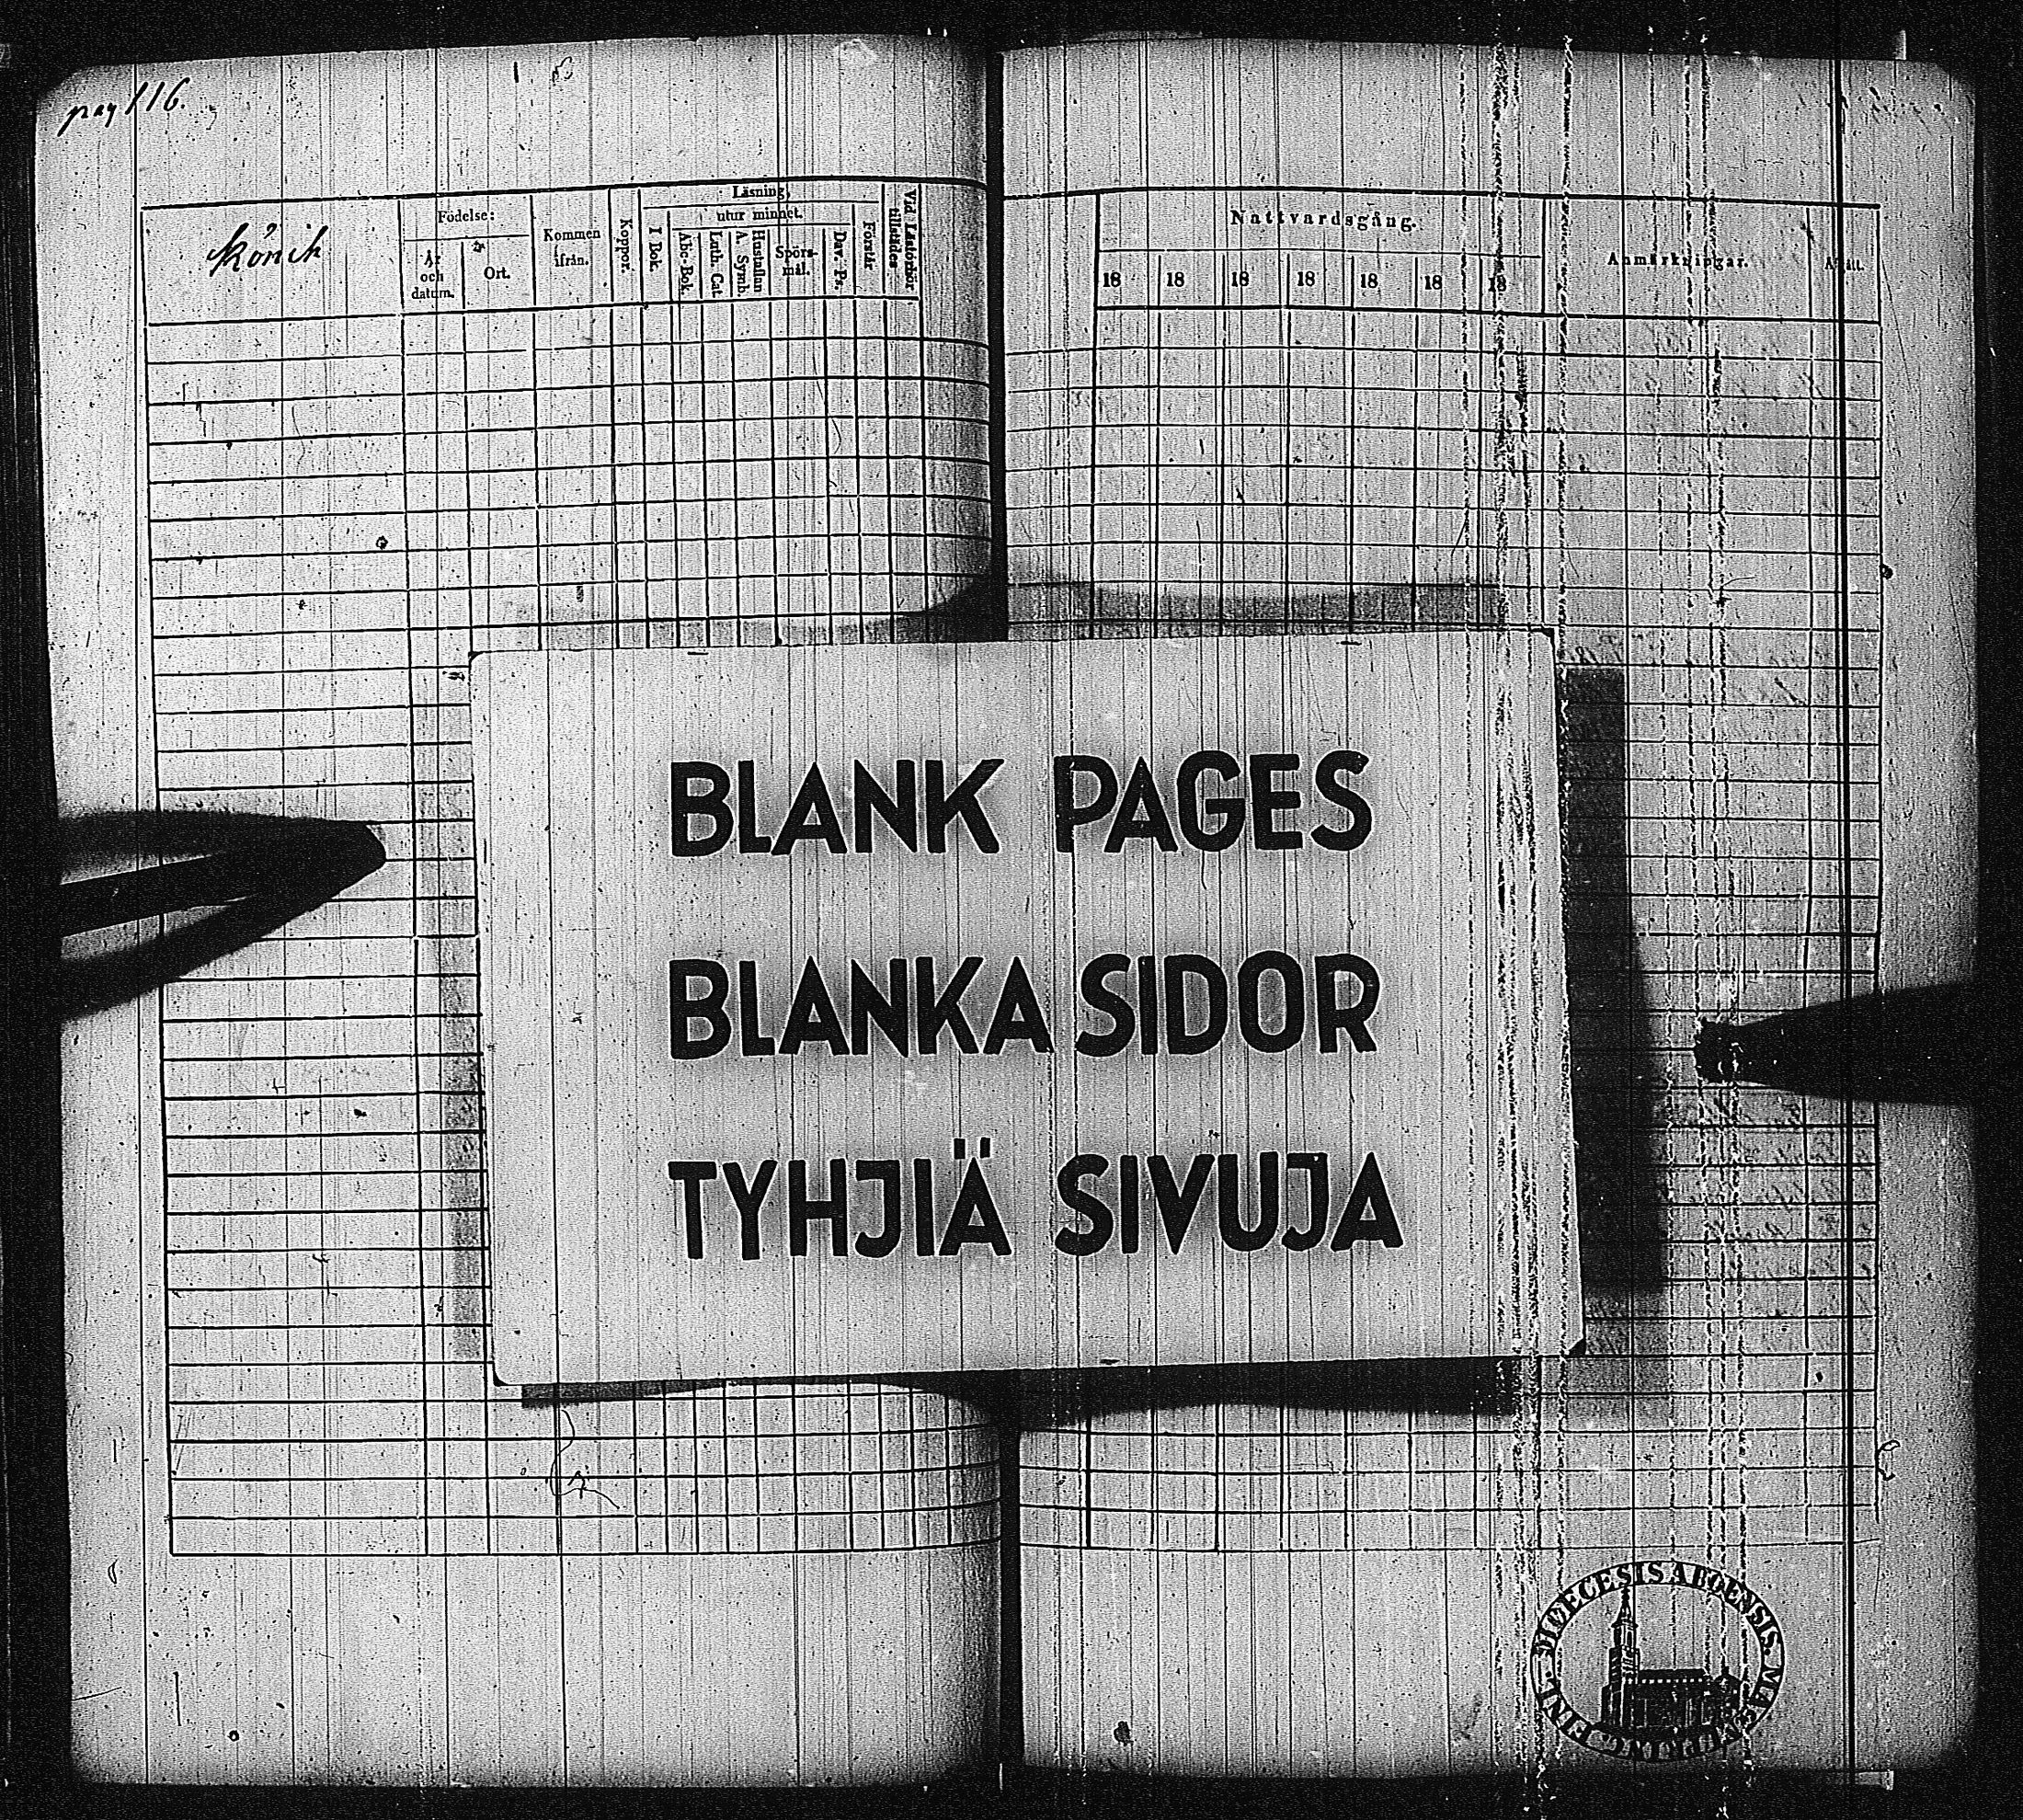 pag 116.
Födelse:
År
och
datum.
Ort.
Kommen
ifrån.
Koppor.
Läsning,
utur minnet.
I Bok.
Abc-Bok.
Luth. Cat.
Hustaflan
A. Symb.
Spörs-
mål.
Dav. Ps.
Förstår
Vid Läsförhör
tillstädes
Nattvardsgång.
18 18 18 18 18 18 18
Anmärkningar.
BLANK PAGES
BLANKA SIDOR
TYHJIÄ SIVUJA
DIŒCESIS ABOENSIS. MAGNI PRINC. FINL.